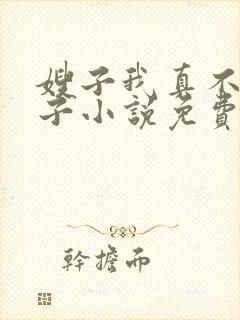 嫂子我真不
子小説免費
幹擔而